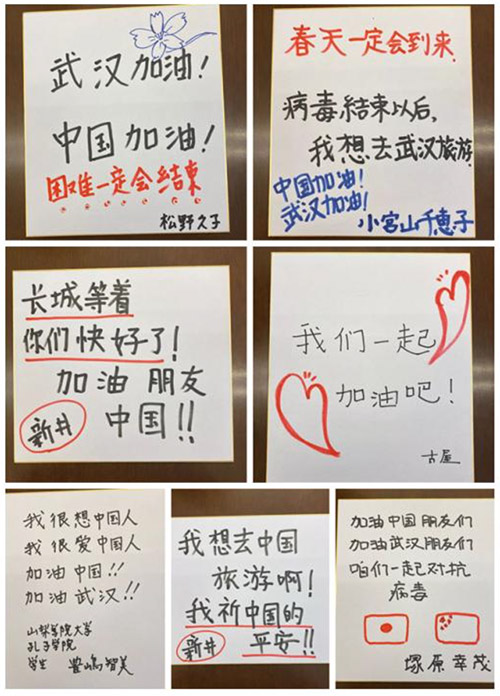 武汉加油!
中国加油!
困难一定会结束
松野久子
春天一定会到来.
病毒結束以后,
我想去武汉旅游.
中国加油!
武汉加油!
小宮山千恵子
长城等着
你们快好了!
加油 朋友
新井 中国!!
我们一起
加油吧!
古屋
我很想中国人
我很爱中国人
加油 中国!!
加油 武汉!!
山梨学院大学
孔子学院
学生 豊嶋智美
我想去中国
旅游啊!
我祈中国的
新井 平安!!
加油中国朋友们
加油武汉朋友们
咱们一起对抗
病毒
塚原幸茂